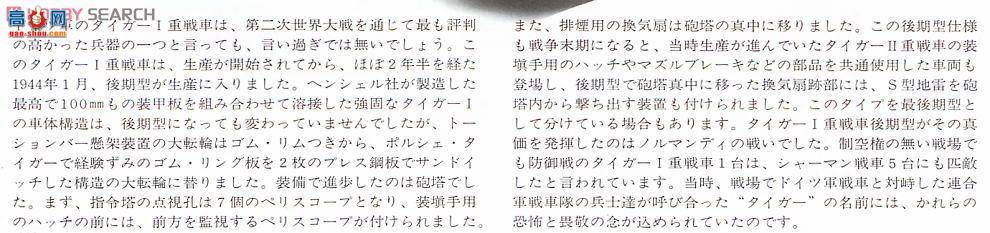 SEARCH
gao-shou.com
重戦車は、第二次世界大戦を通じて最も評判
の高かった兵器の一つと言っても、言い過ぎでは無いでしょう。こ
のタイガーⅠ重戦車は、生産が開始されてから、ほぼ2年半を経た
1944年1月、後期型が生産に入りました。ヘンシェル社が製造した
最高で100mmもの装甲板を組み合わせて溶接した強固なタイガーⅠ
の車体構造は、後期型になっても変わっていませんでしたが、トー
ションバー懸架装置の大転輪はゴム・リムつきから、ポルシェ・タ
イガーで経験ずみのゴム・リング板を2枚のプレス鋼板でサンドイ
ッチした構造の大転輪に替りました。装備で進歩したのは砲塔でし
た。まず、指令塔の点視孔は7個のペリスコープとなり、装塡手用
のハッチの前には、前方を監視するペリスコープが付けられました。
また、排煙用の換気扇は砲塔の真中に移りました。この後期型仕様
も戦争末期になると、当時生産が進んでいたタイガーⅡ重戦車の装
塡手用のハッチやマズルブレーキなどの部品を共通使用した車両も
登場し、後期型で砲塔真中に移った換気扇跡部には、S型地雷を砲
塔内から撃ち出す装置も付けられました。このタイプを最後期型と
して分けている場合もあります。タイガーⅠ重戦車後期型がその真
価を発揮したのはノルマンディの戦いでした。制空権の無い戦場で
も防御戦のタイガーⅠ重戦車1台は、シャーマン戦車5台にも匹敵
したと言われています。当時、戦場でドイツ軍戦車と対峙した連合
軍戦車隊の兵士達が呼び合った“タイガー”の名前には、かれらの
恐怖と畏敬の念が込められていたのです。